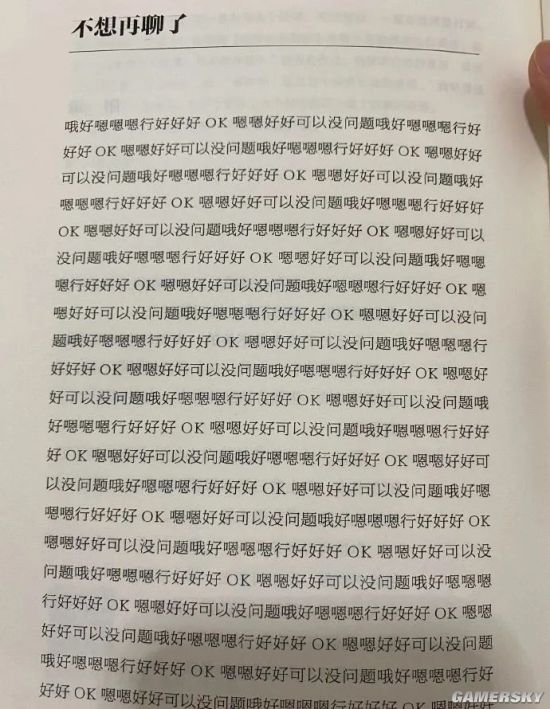 不想再聊了
哦好嗯嗯嗯行好好好 OK 嗯嗯好好可以没问题哦好嗯嗯嗯行好
好好 OK 嗯嗯好好可以没问题哦好嗯嗯嗯行好好好 OK 嗯嗯好好
可以没问题哦好嗯嗯嗯行好好好 OK 嗯嗯好好可以没问题哦好
嗯嗯嗯行好好好 OK 嗯嗯好好可以没问题哦好嗯嗯嗯行好好好
OK 嗯嗯好好可以没问题哦好嗯嗯嗯行好好好 OK 嗯嗯好好可以
没问题哦好嗯嗯嗯行好好好 OK 嗯嗯好好可以没问题哦好嗯嗯
嗯行好好好 OK 嗯嗯好好可以没问题哦好嗯嗯嗯行好好好 OK 嗯
嗯好好可以没问题哦好嗯嗯嗯行好好好 OK 嗯嗯好好可以没问
题哦好嗯嗯嗯行好好好 OK 嗯嗯好好可以没问题哦好嗯嗯嗯行
好好好 OK 嗯嗯好好可以没问题哦好嗯嗯嗯行好好好 OK 嗯嗯好
好可以没问题哦好嗯嗯嗯行好好好 OK 嗯嗯好好可以没问题哦
好嗯嗯嗯行好好好 OK 嗯嗯好好可以没问题哦好嗯嗯嗯行好好
好 OK 嗯嗯好好可以没问题哦好嗯嗯嗯行好好好 OK 嗯嗯好好可
以没问题哦好嗯嗯嗯行好好好 OK 嗯嗯好好可以没问题哦好嗯
嗯嗯行好好好 OK 嗯嗯好好可以没问题哦好嗯嗯嗯行好好好 OK
嗯嗯好好可以没问题哦好嗯嗯嗯行好好好 OK 嗯嗯好好可以没
问题哦好嗯嗯嗯行好好好 OK 嗯嗯好好可以没问题哦好嗯嗯嗯
行好好好 OK 嗯嗯好好可以没问题哦好嗯嗯嗯行好好好 OK 嗯嗯
好好可以没问题哦好嗯嗯嗯行好好好 OK 嗯嗯好好可以没问题
哦好嗯嗯嗯行好好好 OK 嗯嗯好好可以没问题哦好嗯嗯嗯行好
好好 OK 嗯嗯好好可以没问题哦好嗯嗯嗯行好好好 OK 嗯嗯好好
GAMERSKY